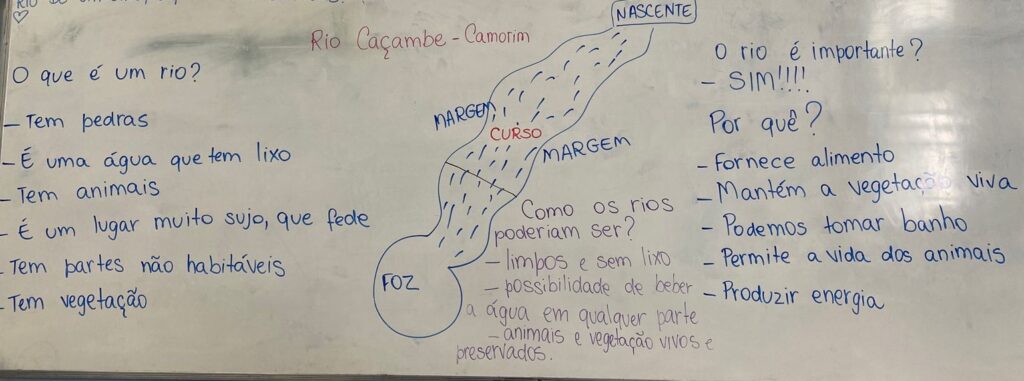 Rio Caçambe - Camorim
O que é um rio?
- Tem pedras
- É uma água que tem lixo
- Tem animais
- É um lugar muito sujo, que fede
- Tem partes não habitáveis
- Tem vegetação
NASCENTE
MARGEM
CURSO
MARGEM
FOZ
Como os rios
poderiam ser?
- limpos e sem lixo
- possibilidade de beber
a água em qualquer parte
- animais e vegetação vivos e
preservados.
O rio é importante?
- SIM!!!!
Por quê?
- Fornece alimento
- Mantém a vegetação viva
- Podemos tomar banho
- Permite a vida dos animais
- Produzir energia